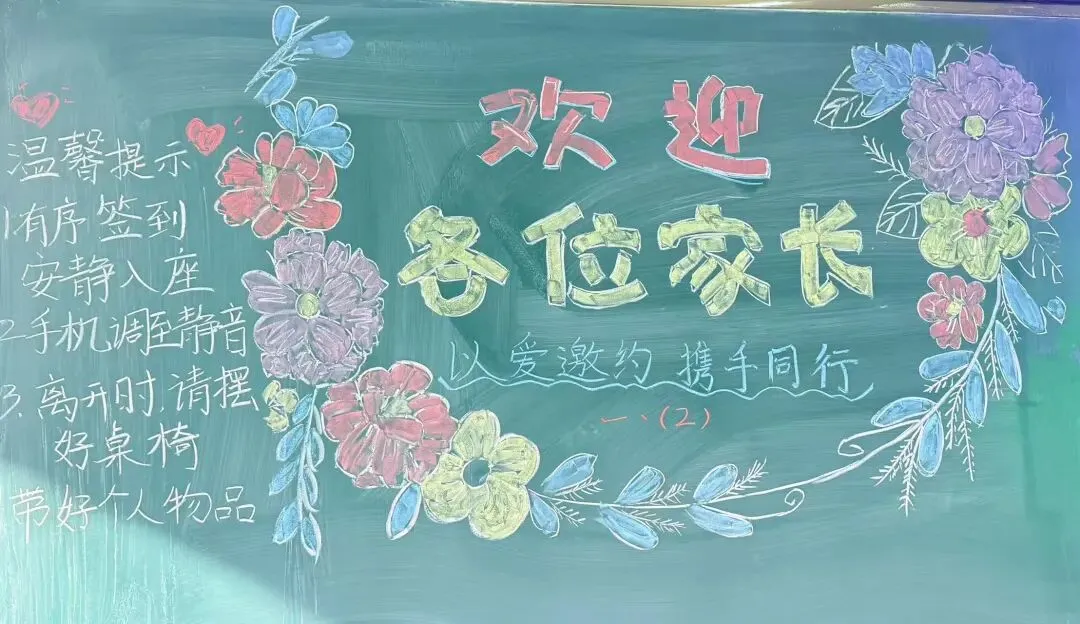 温馨提示
1.有序签到
安静入座
2.手机调至静音
3.离开时,请摆
好桌椅
带好个人物品
欢迎
各位家长
以爱邀约 携手同行
一、(2)